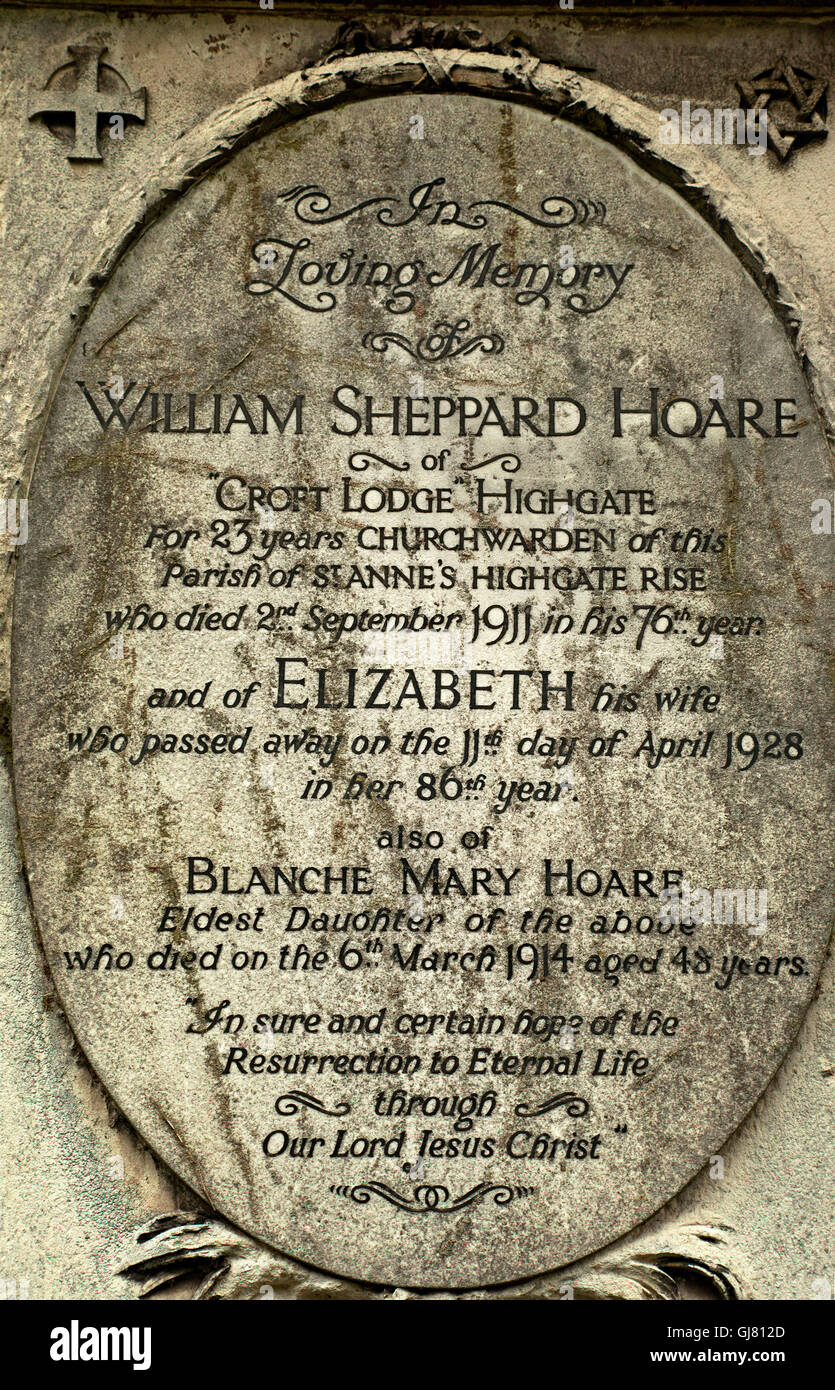 In
Loving Memory
of
WILLIAM SHEPPARD HOARE
of
"CROFT LODGE" HIGHGATE
For 23 years CHURCHWARDEN of this
Parish of ST ANNE'S HIGHGATE RISE
who died 2nd September 1911 in his 76th year.
and of ELIZABETH his wife
who passed away on the 11th day of April 1928
in her 86th year.
also of
BLANCHE MARY HOARE
Eldest Daughter of the above
who died on the 6th March 1914 aged 48 years.
"In sure and certain hope of the
Resurrection to Eternal Life
through
Our Lord Jesus Christ"
alamy
Image ID: GJ812D
www.alamy.com